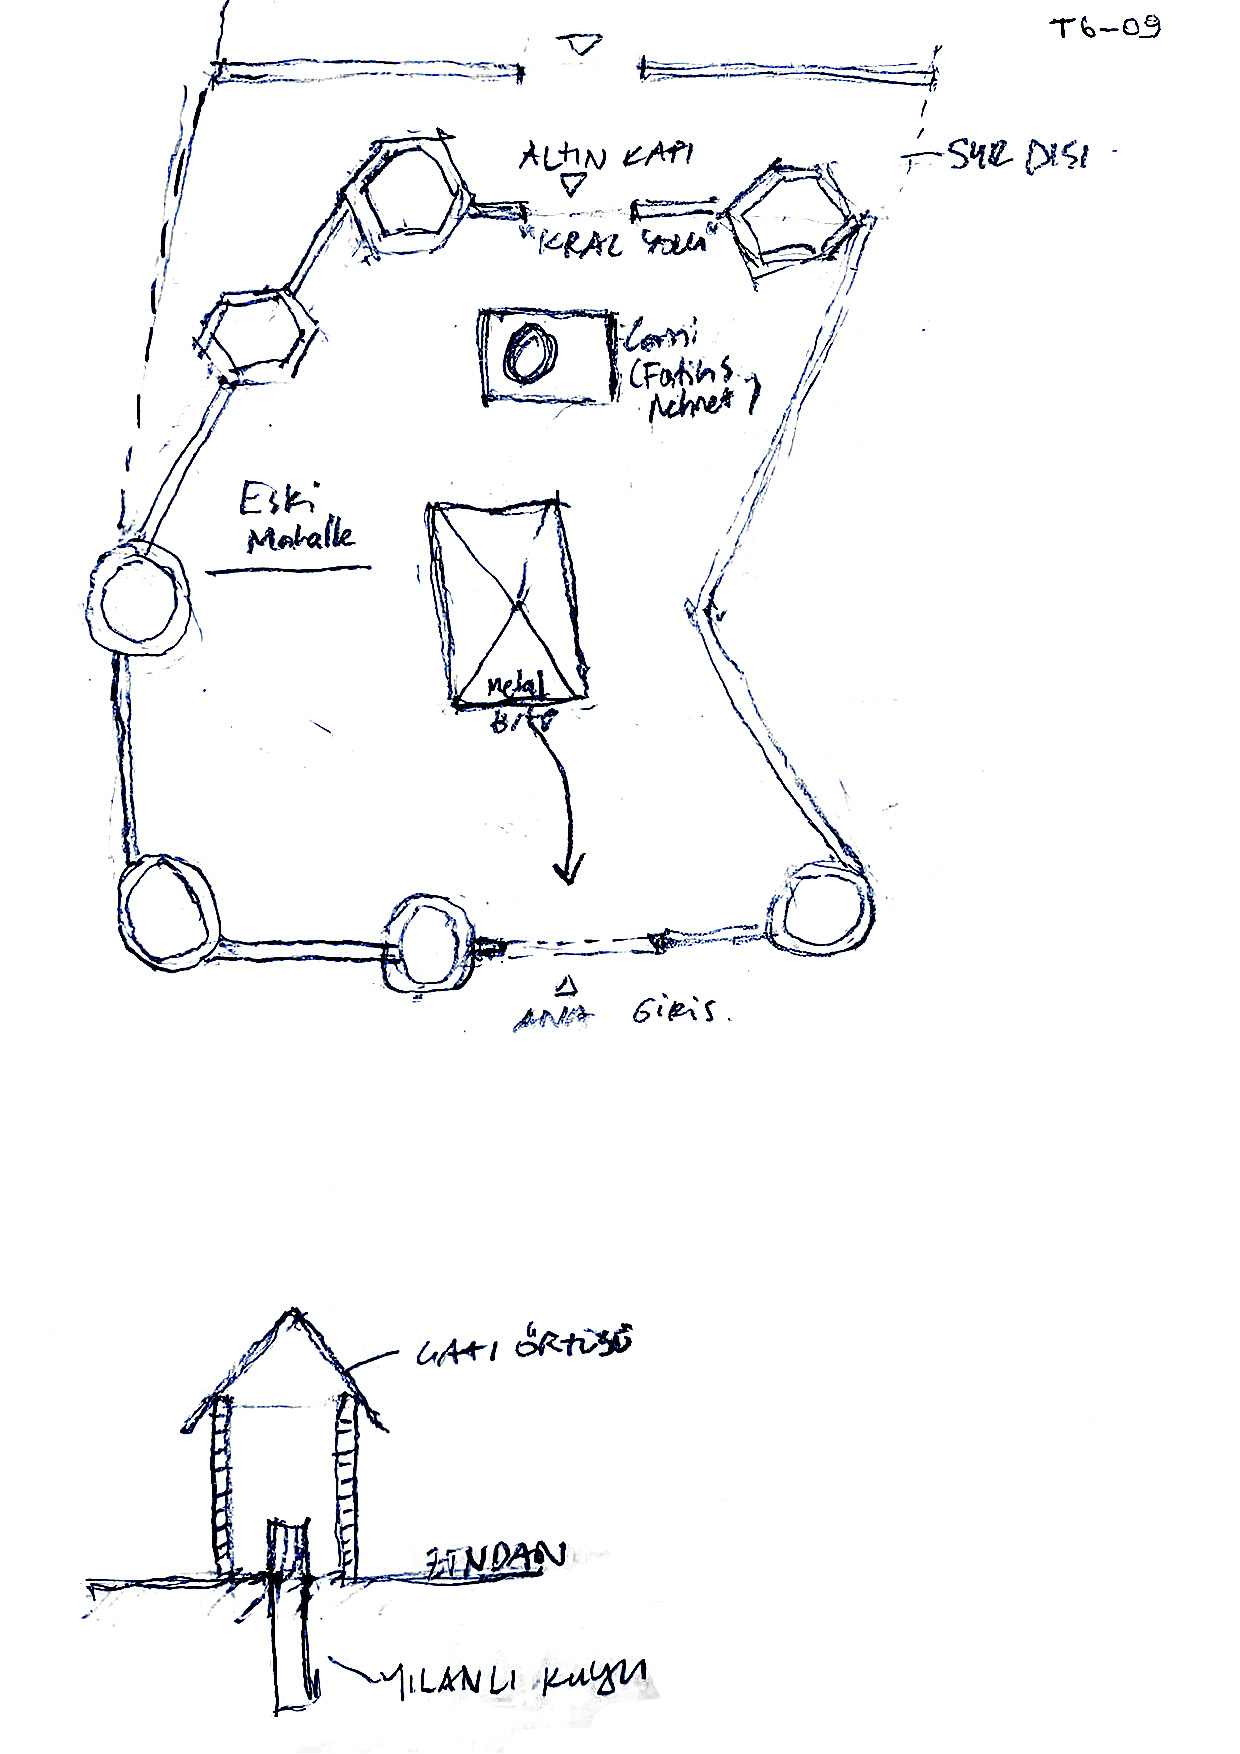 T6-09
ALTIN KAPI
SUR DIŞI
"KRAL YOLU"
Cami
(Fatih S.
Mehmet)
Eski
Mahalle
Metal
ANA GİRİS.
ÇATI ÖRTÜSÜ
ZINDAN
YILANLI KUYU